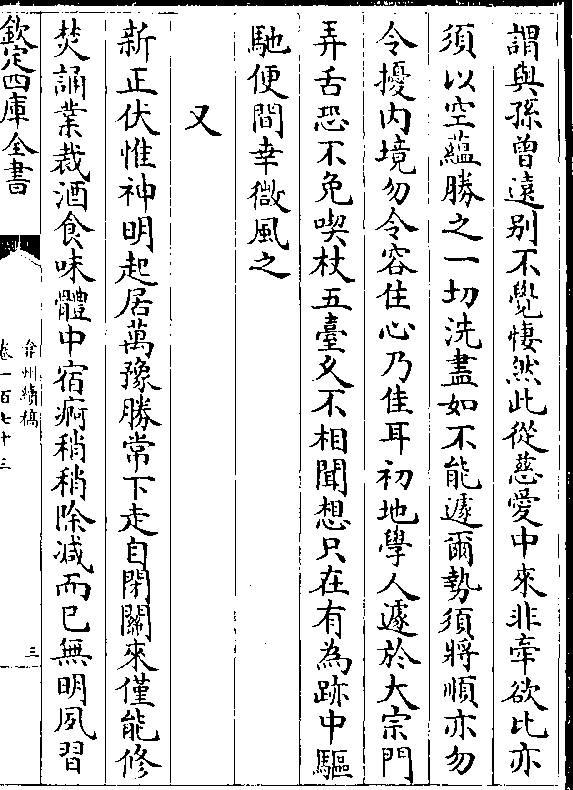 謂與孫曾遠别不覺悽然此從慈愛中來非牽欲比亦
須以空蘊勝之一切洗盡如不能遽爾勢須將順亦勿
令擾内境勿令容住心乃佳耳初地學人遽於大宗門
弄舌恐不免喫杖五臺久不相聞想只在有為跡中驅
馳便間幸微風之
又
新正伏惟神明起居萬豫勝常下走自閉關來僅能修
焚誦業裁酒食味體中宿痾稍稍除減而已無明夙習
欽定四庫全書
弇州續稿
卷一百七十三
三